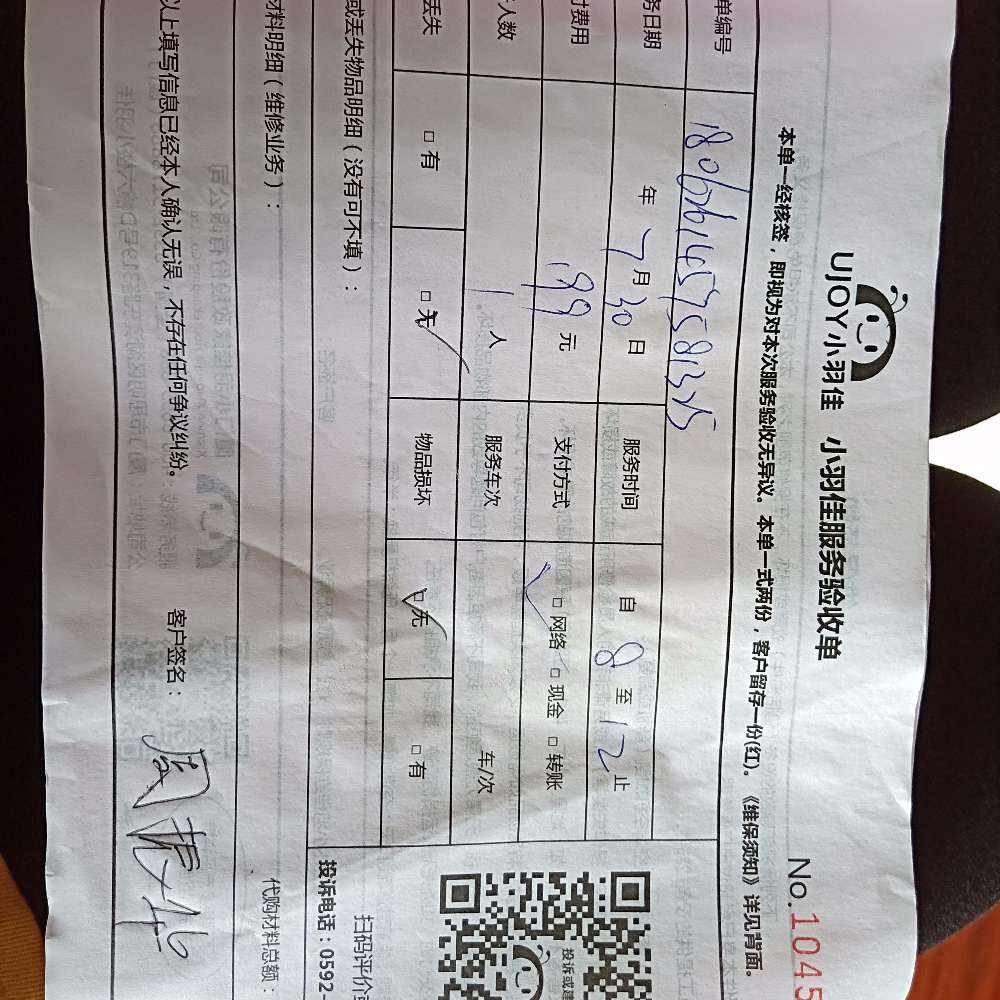 UJOY小羽佳 小羽佳服务验收单
No.1045
本单一经核签，即视为对本次服务验收无异议。本单一式两份，客户留存一份(红)。《维保须知》详见背面。
单编号
务日期 年 7 月 30 日 服务时间 自 8 至 12 止
付费用 199 元 支付方式 □ 网络 □ 现金 □ 转账
人数 1 人 服务车次 车/次
丢失 □ 有 □ 无 物品损坏 □ 无 □ 有
或丢失物品明细（没有可不填）：
材料明细（维修业务）：
代购材料总额：
以上填写信息已经本人确认无误，不存在任何争议纠纷。 客户签名：
投诉或建
扫码评价或
投诉电话：0592-